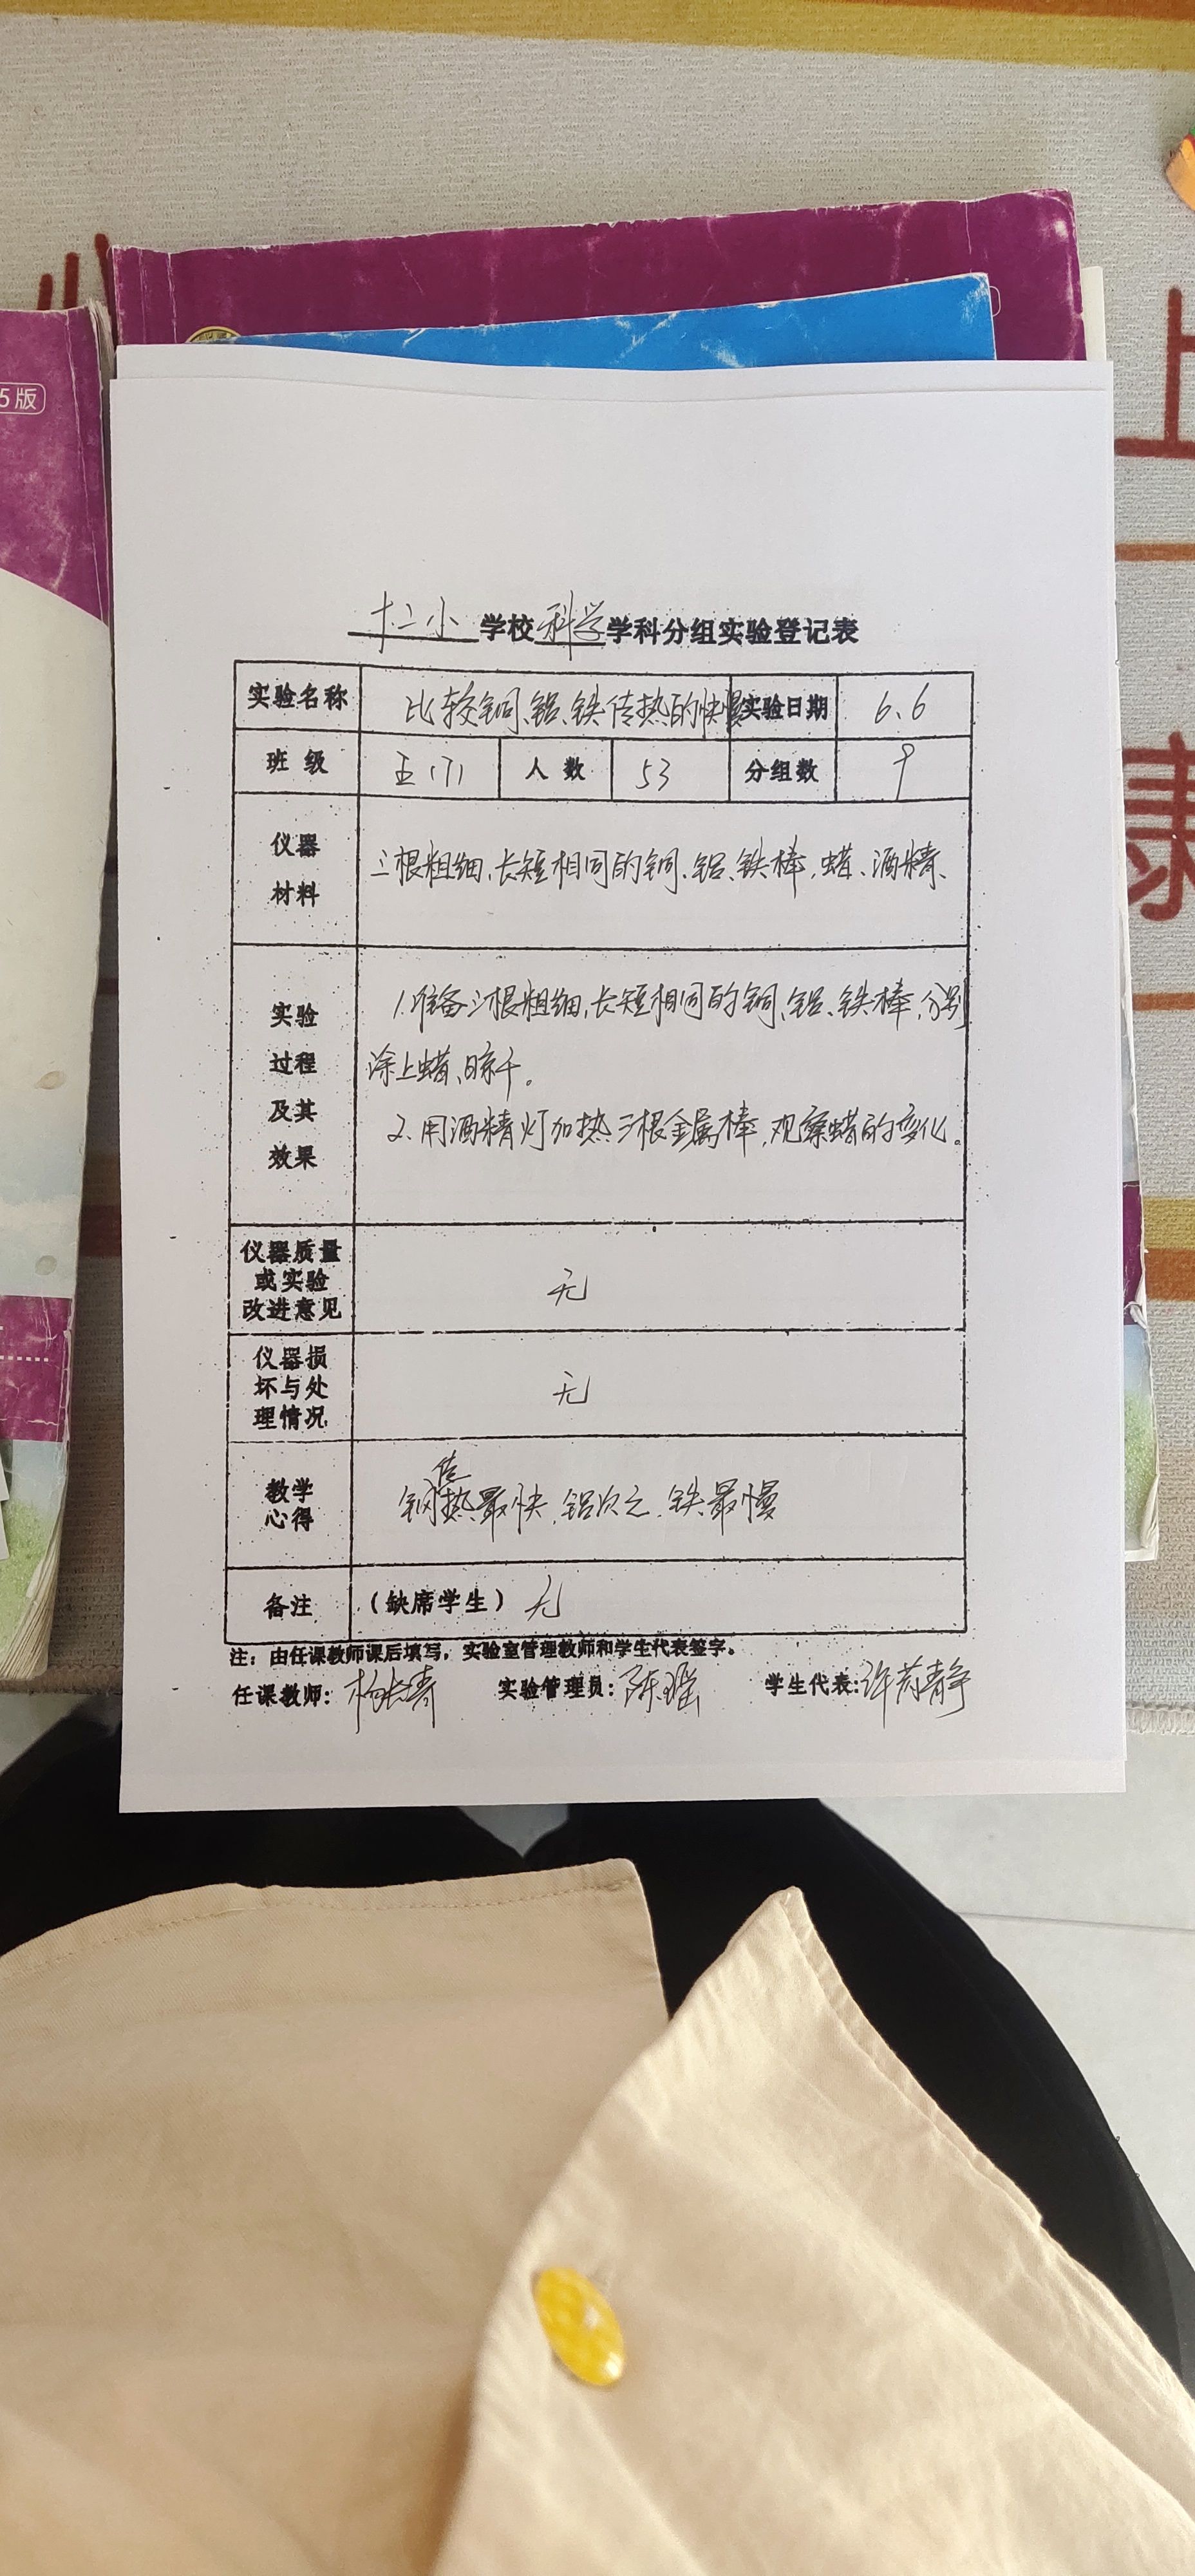 5版
十二小学校科学学科分组实验登记表
实验名称 比较铜、铝、铁传热的快慢 实验日期 6.6
班级 五(7) 人数 53 分组数 9
仪器
材料
三根粗细、长短相同的铜、铝、铁棒,蜡、酒精、
实验
过程
及其
效果
1.准备三根粗细、长短相同的铜、铝、铁棒,分别
涂上蜡、晾干。
2.用酒精灯加热三根金属棒,观察蜡的变化。
仪器质量
或实验
改进意见
无
仪器损
坏与处
理情况
无
教学
心得
铜传热最快,铝次之,铁最慢
备注 (缺席学生) 无
注:由任课教师课后填写,实验室管理教师和学生代表签字。
任课教师: 实验管理员:陈瑶 学生代表:
上
康